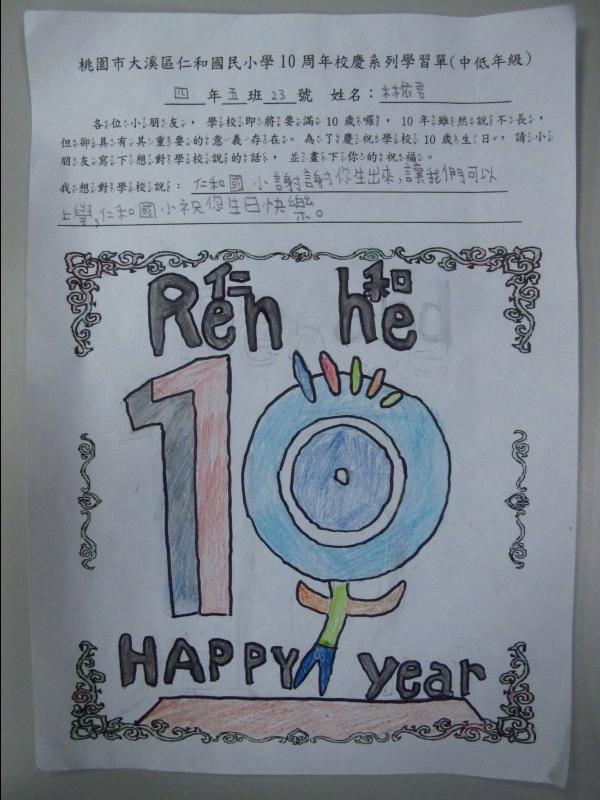 桃園市大溪區仁和國民小學10周年校慶系列學習單(中低年級)
四年五班23號 姓名：林依君
各位小朋友，學校即將要滿10歲囉，10年雖然說不長，
但卻具有其重要的意義存在。為了慶祝學校10歲生日，請小
朋友寫下想對學校說的話，並畫下你的祝福。
我想對學校說：仁和國小謝謝你生出來,讓我們可以
上學,仁和國小祝你生日快樂。
仁 和
Ren he
10
HAPPY year